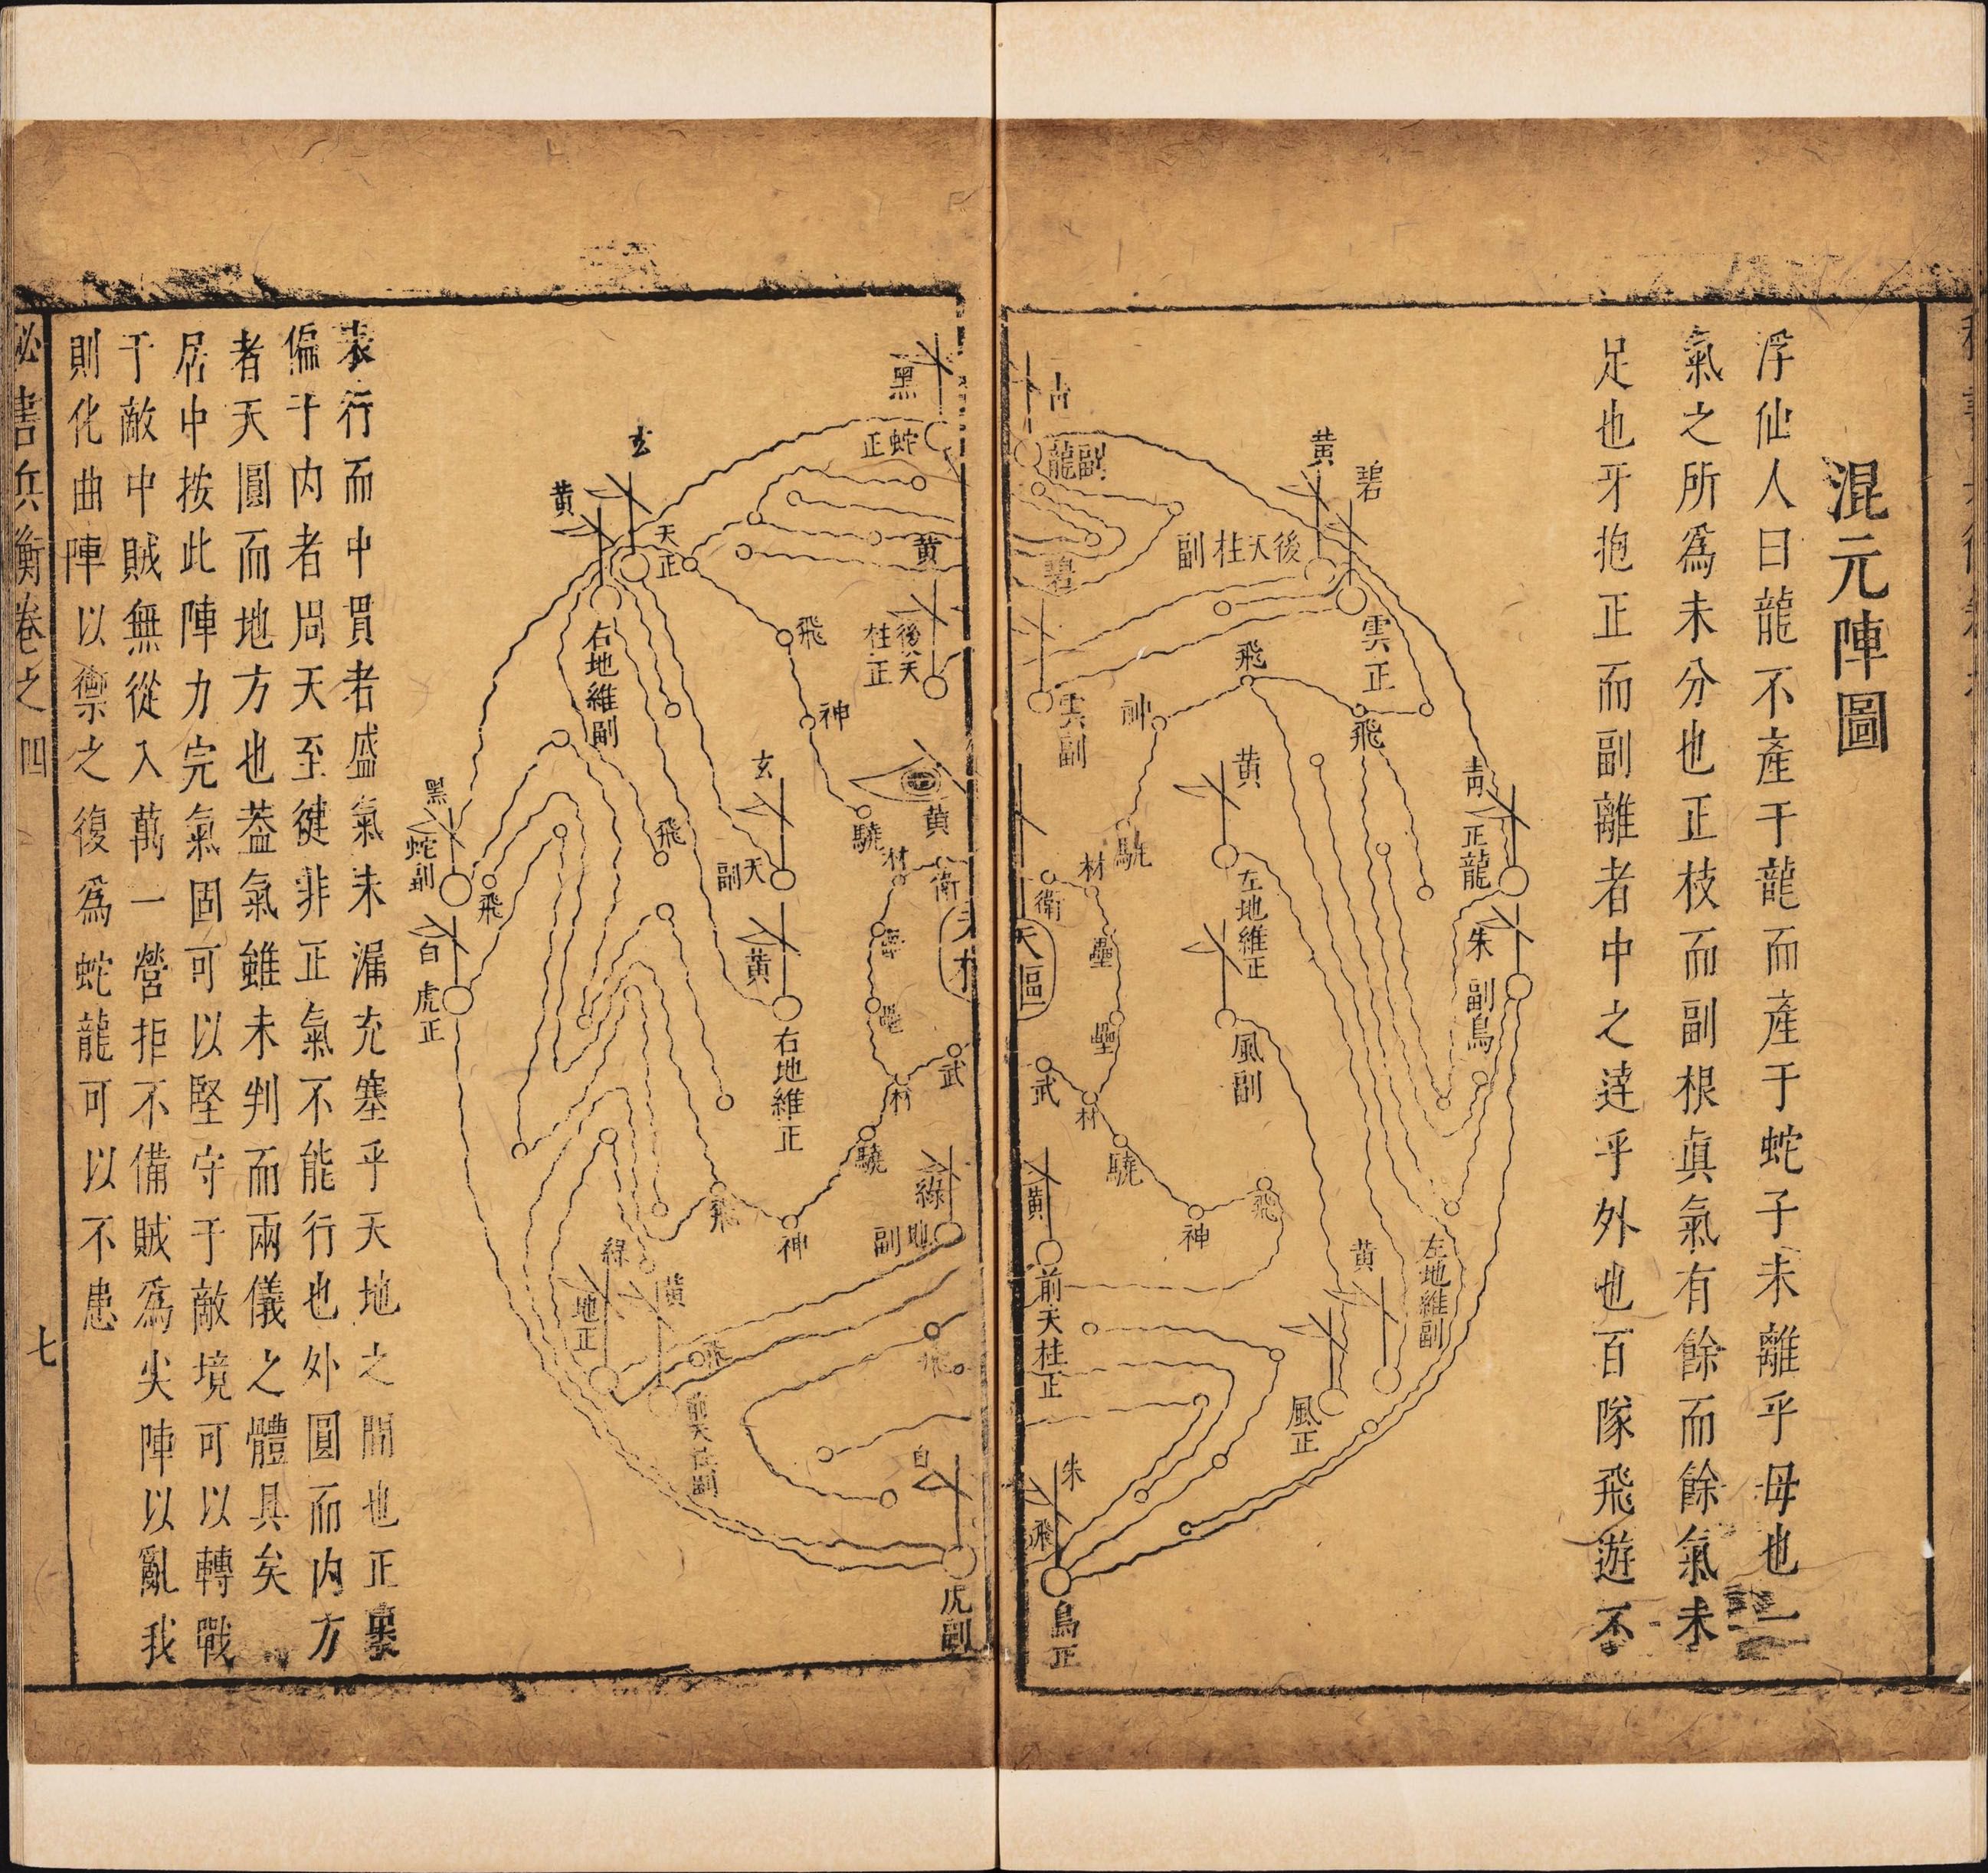 混元陣圖
浮仙人曰龍不產于龍而產于蛇子未離乎母也一
氣之所爲未分也正枝而副根眞氣有餘而餘氣未
足也牙抱正而副離者中之達乎外也百隊飛遊不
黃
碧
後天柱副
雲正
副龍
碧
雲副
飛
飛
神
驍
材
衛
壘
壘
天樞
武
材
驍
神
飛
黃
左地維正
風副
青
正龍
朱
副鳥
黃
左地維副
風正
黃
前天柱正
朱
飛
鳥正
黑
蛇正
玄
黃
天正
右地維副
黃
後天柱正
飛
神
驍
黃
材
衛
武
材
驍
神
飛
玄
天副
黃
右地維正
飛
黑
蛇副
飛
白
虎正
綠
地副
綠
地正
黃
飛
前天柱副
飛
白
虎副
表行而中貫者盛氣未漏充塞乎天地之間也正裏
偏于内者周天至健非正氣不能行也外圓而内方
者天圓而地方也葢氣雖未判而兩儀之體具矣
居中按此陣力完氣固可以堅守于敵境可以轉戰
于敵中賊無從入萬一營拒不備賊爲尖陣以亂我
則化曲陣以禦之復爲蛇龍可以不患
秘書兵衡卷之四
七